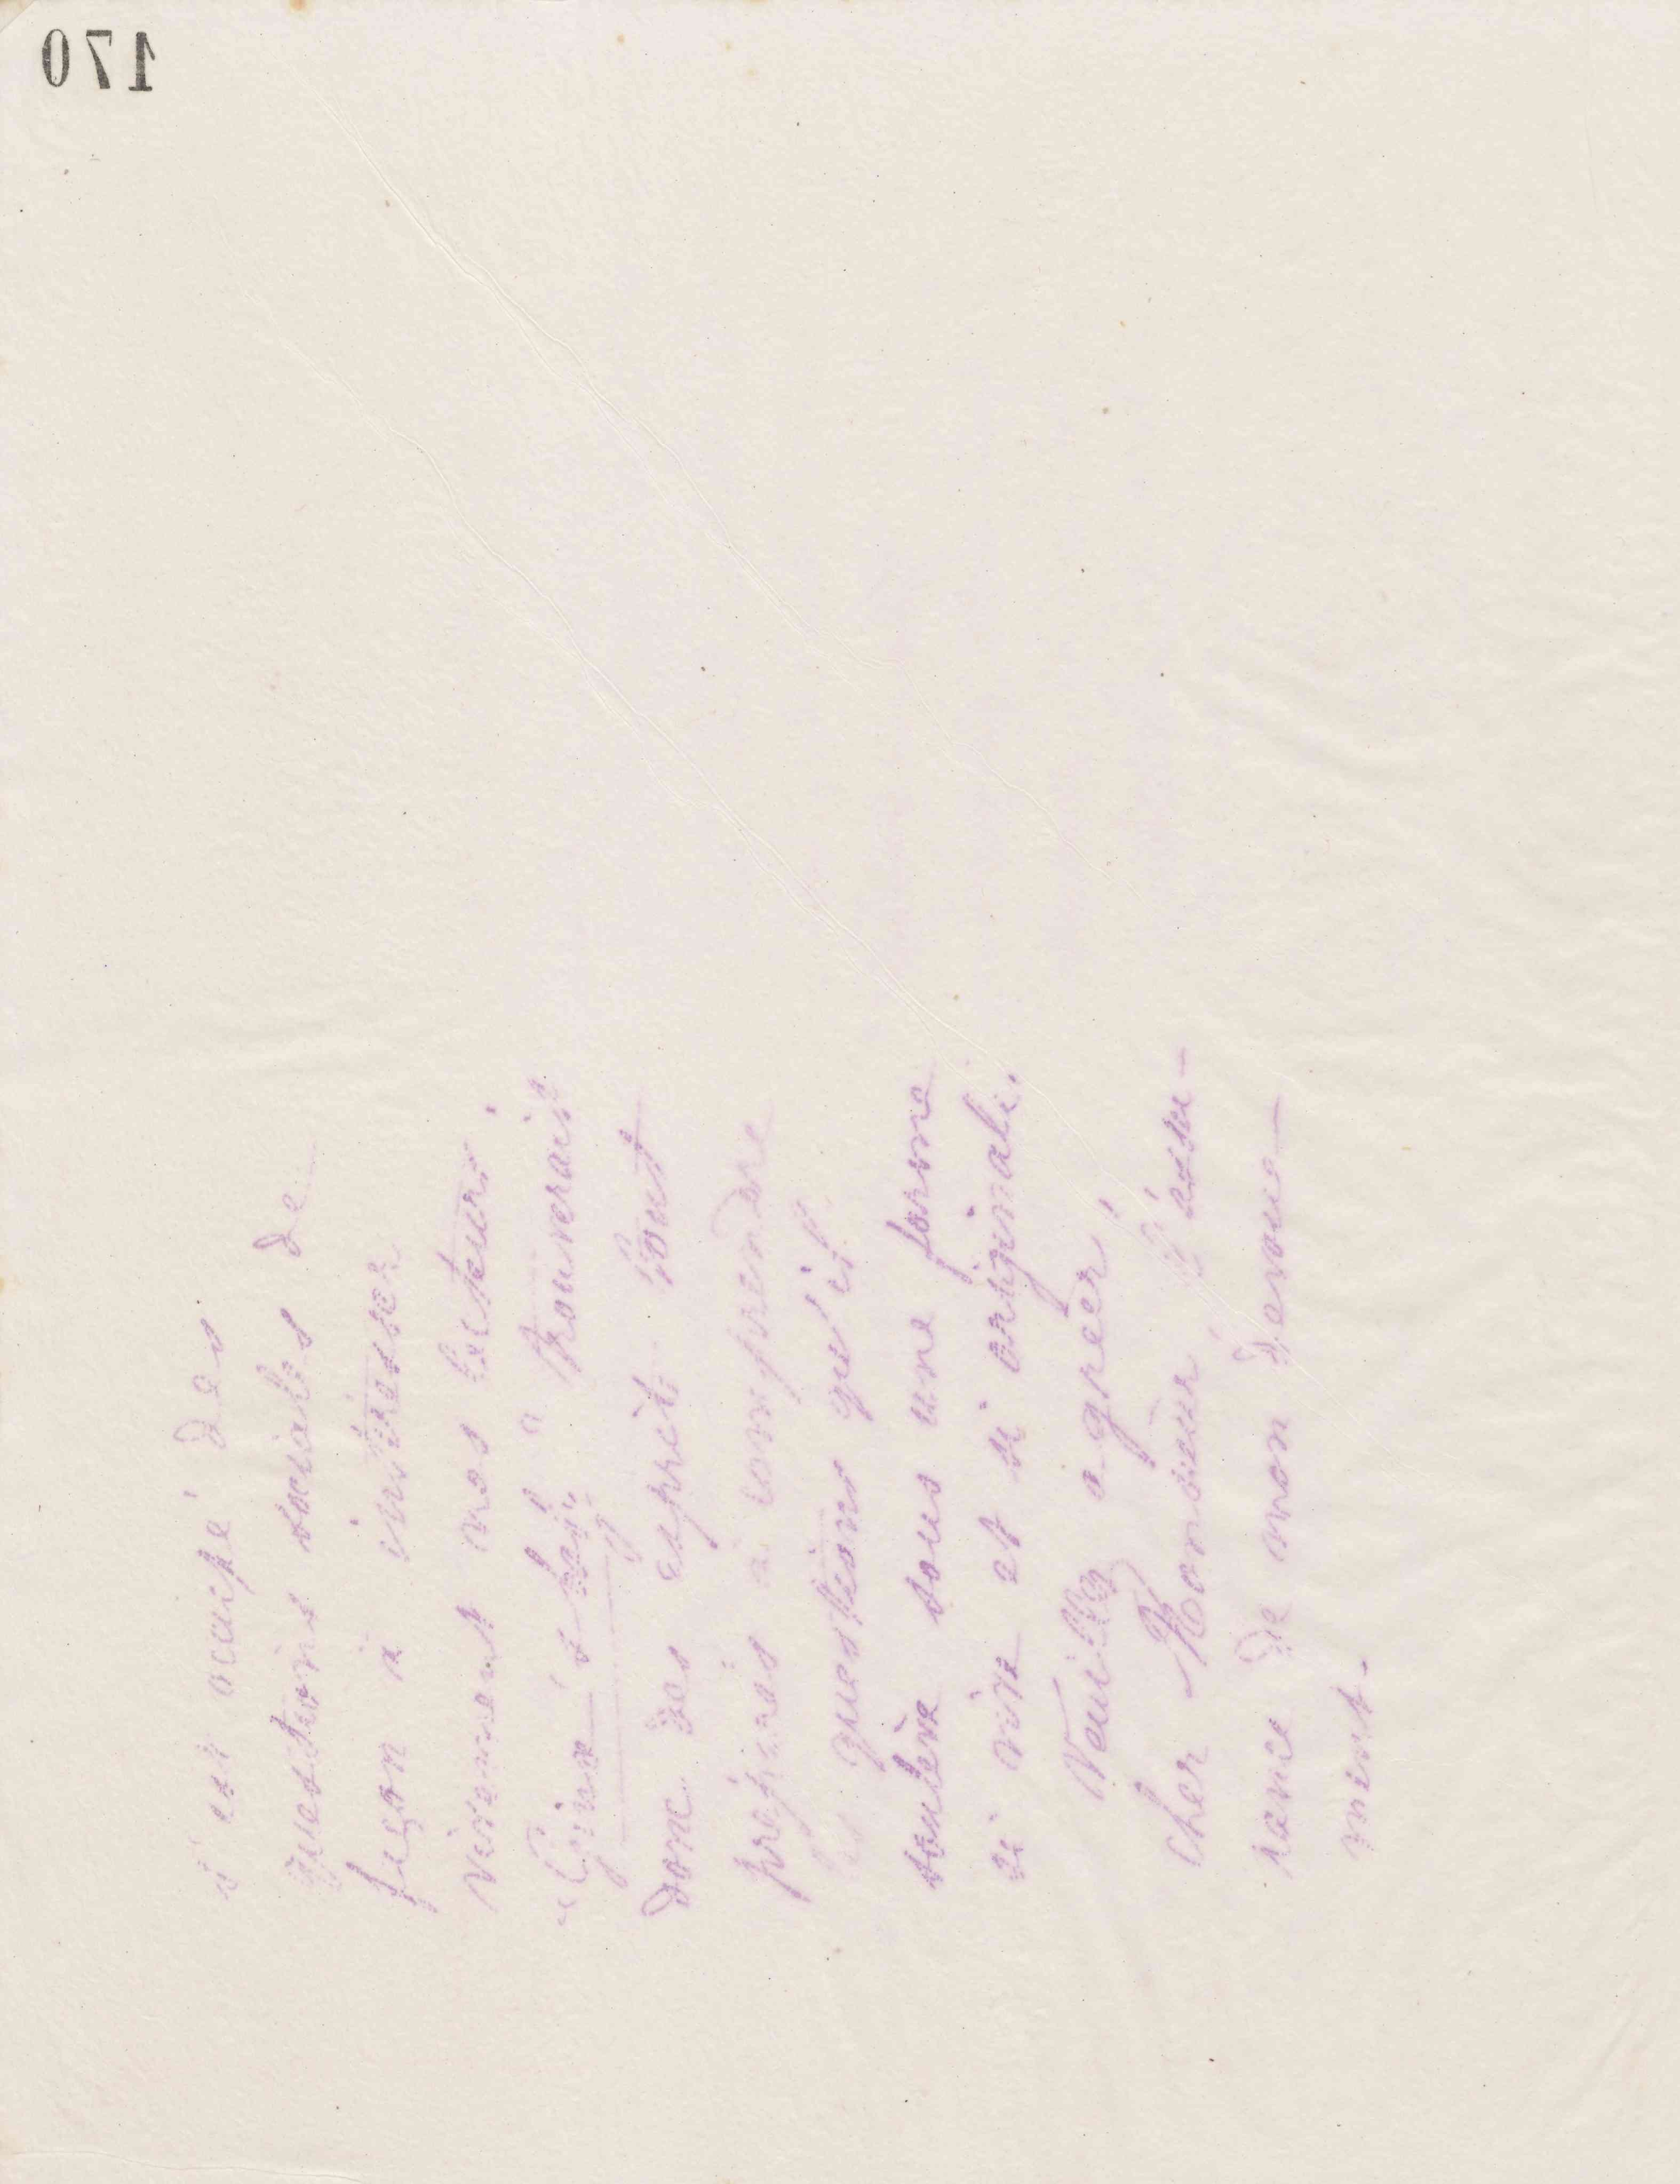 170
s'est occupé des
questions sociales de
façon à intéresser
vivement nos lecteurs.
trouverait
donc des esprits tout
préparés à comprendre
les questions qu'il
soulève sous une forme
si vive et si originale.
Veuillez agréer
cher Monsieur l'assu-
rance de mon dévoue-
ment.